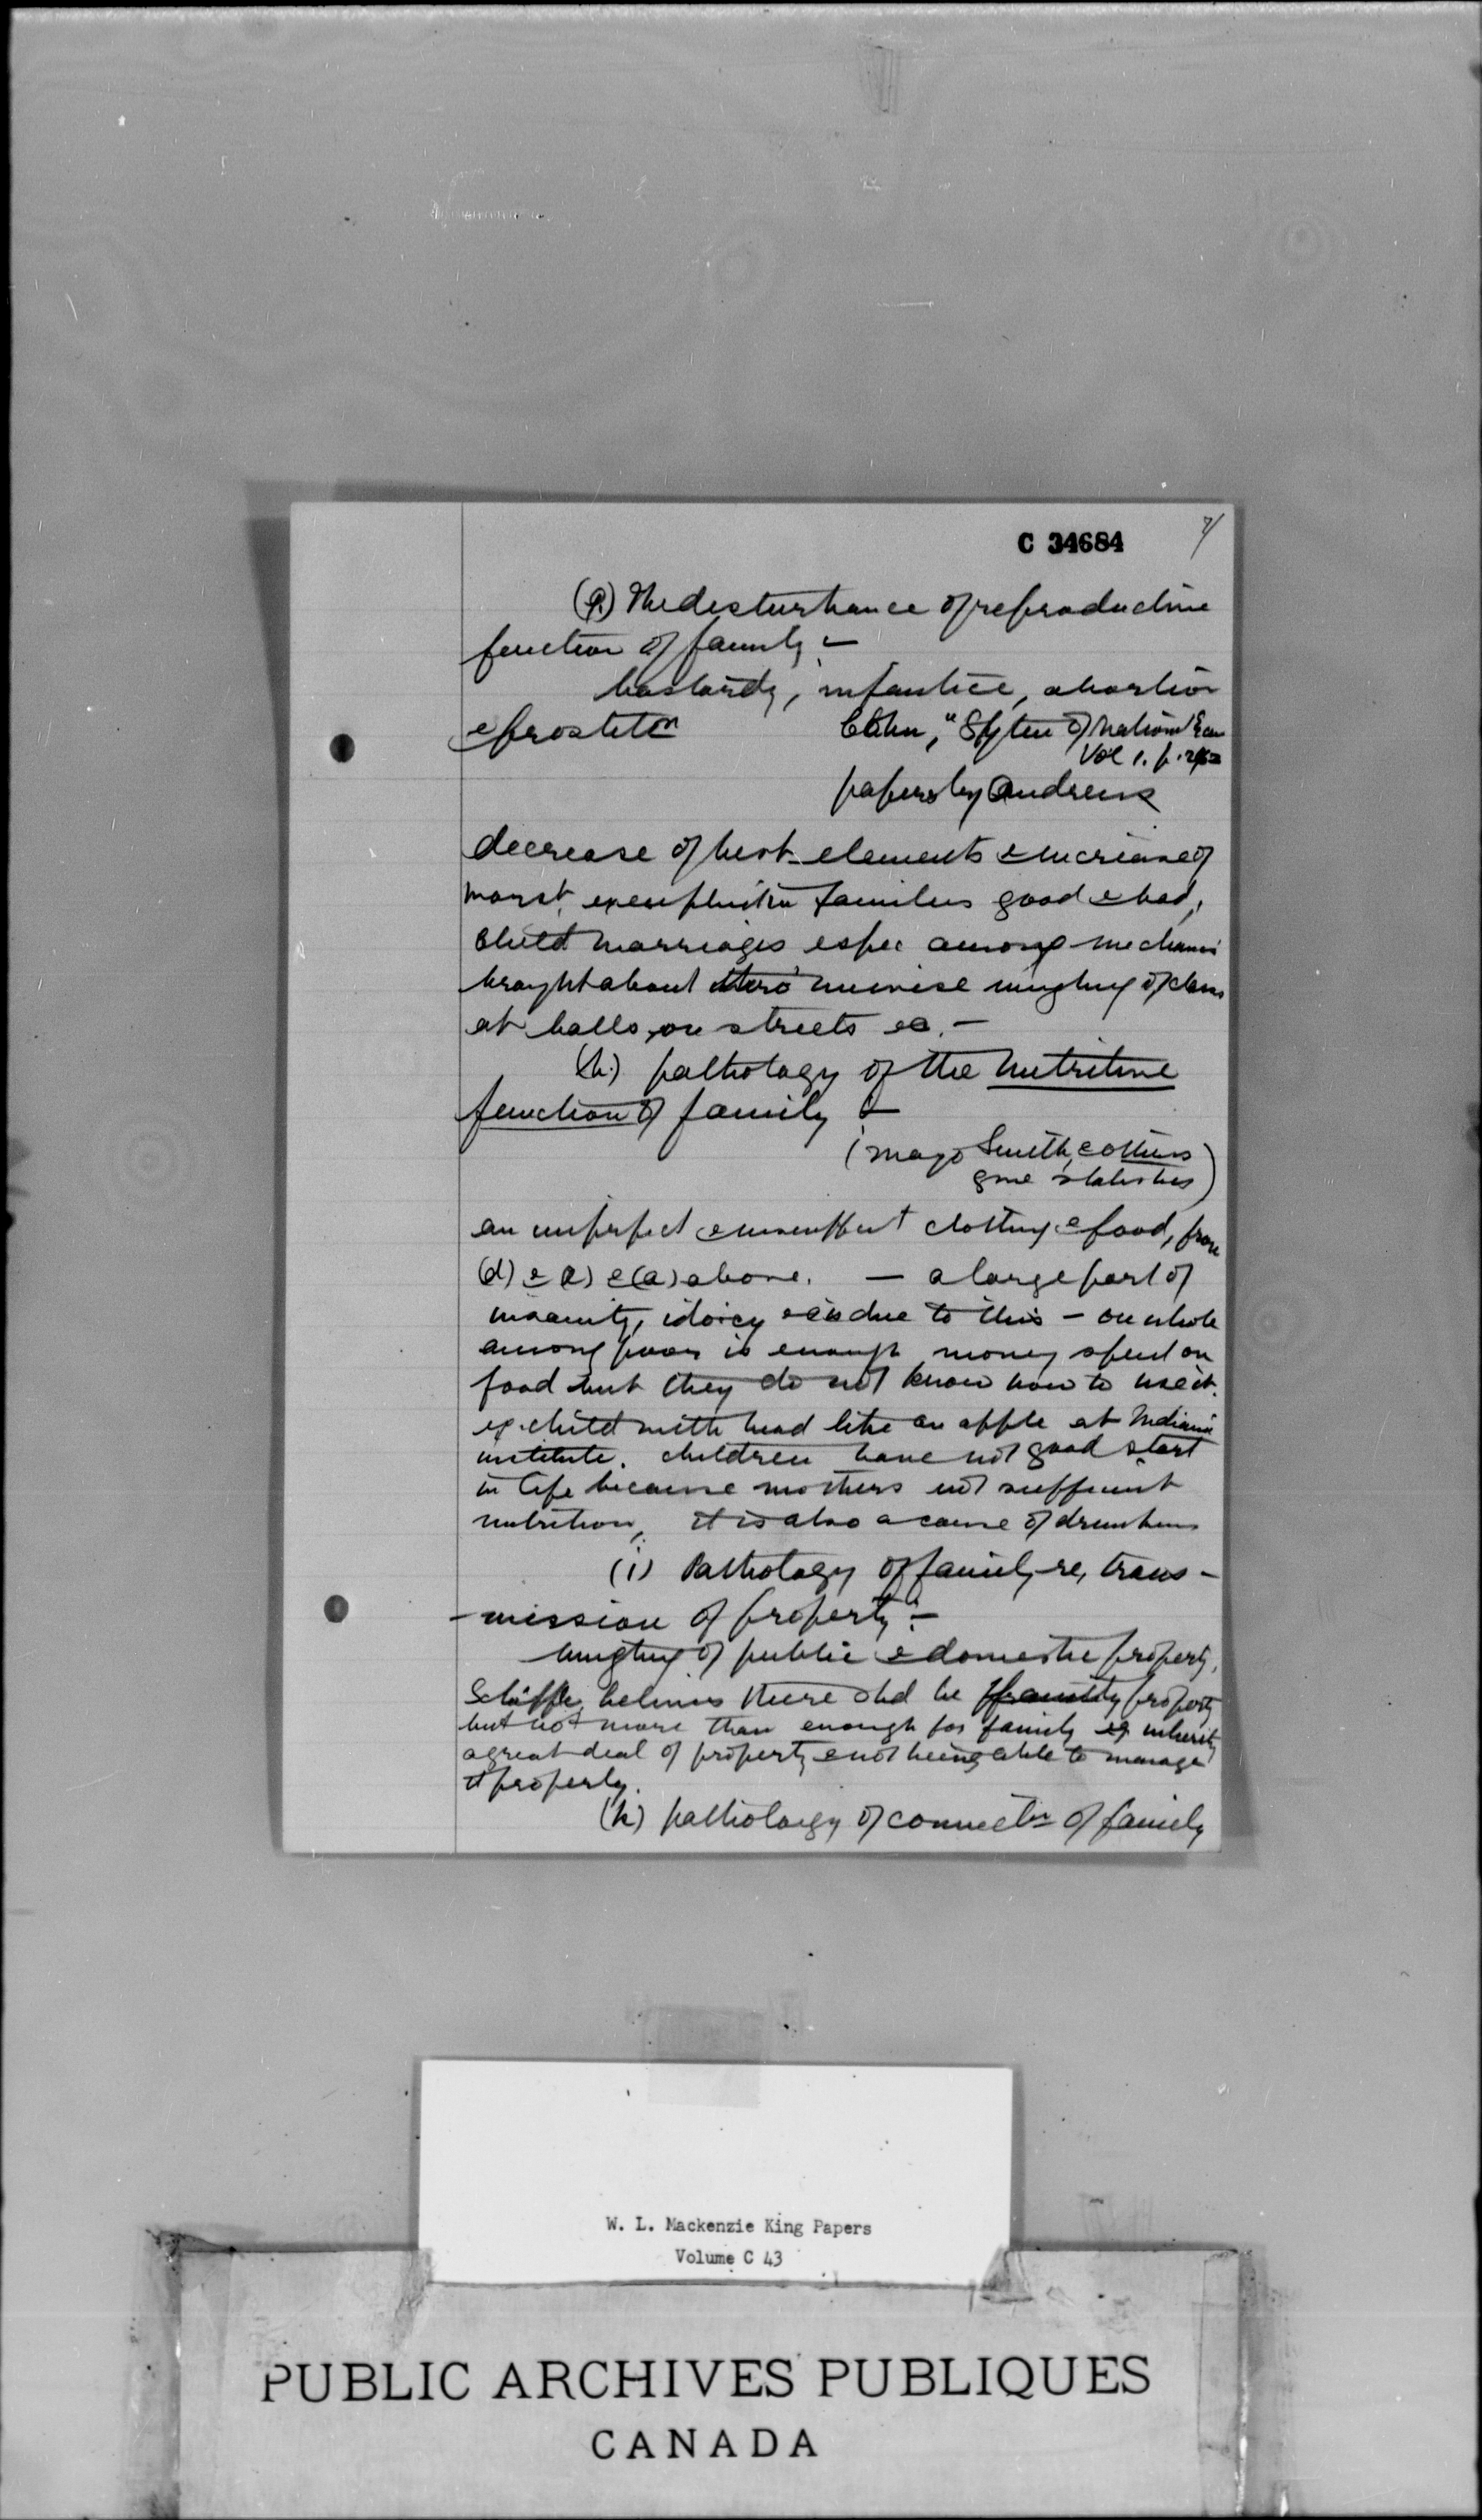 C 34684
7/
(g) The disturbance of reproductive
function of family :-
bastardy, infantice, abortion
& prostitn
Cohn, "System of National Econ
Vol 1. p.
papers by Andrews
decrease of best elements & increase of
worst, families good & bad,
child marriages espec among mechanics
brought about thro' unwise mingling of class
at balls, on streets etc. -
(h.) pathology of the nutritive
function of family :-
(Mayo Smith, & others
give statistics)
an imperfect & insufft clothing & food, from
(d) & (e) & (a) above. - a large part of
insanity, idiocy etc is due to this - on whole
among poor is enough money spend on
food but they do not know how to use it.
eg. child with head like an apple at Indiana
institute. children have not good start
in life because mothers not sufficient
nutrition, it is also a cause of drunkens
(i) Pathology of family re, trans-
-mission of property :-
mingling of public & domestic property,
Schäffle, believes there shd be family property
but not more than enough for family eg inheritg
a great deal of property & not being able to manage
it properly.
(k) patholoigy of connectn of family
W. L. Mackenzie King Papers
Volume C 43
PUBLIC ARCHIVES PUBLIQUES
CANADA